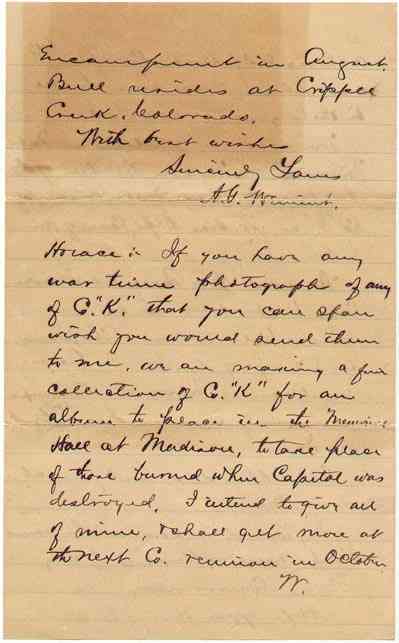 Encampment in August.
Bull resides at Cripple
Creek, Colorado.
With best wishes
Sincerely Yours
A.G.
Horace: If you have any
war time photograph of any
of C. "K." that you can spare
wish you would send them
to me, we are making a fine
collection of Co. "K" for an
album to place in the Memorial
Hall at Madison, to take place
of those burned when Capitol was
destroyed. I intend to give all
of mine, & shall get more at
the next Co. reunion in October
W.